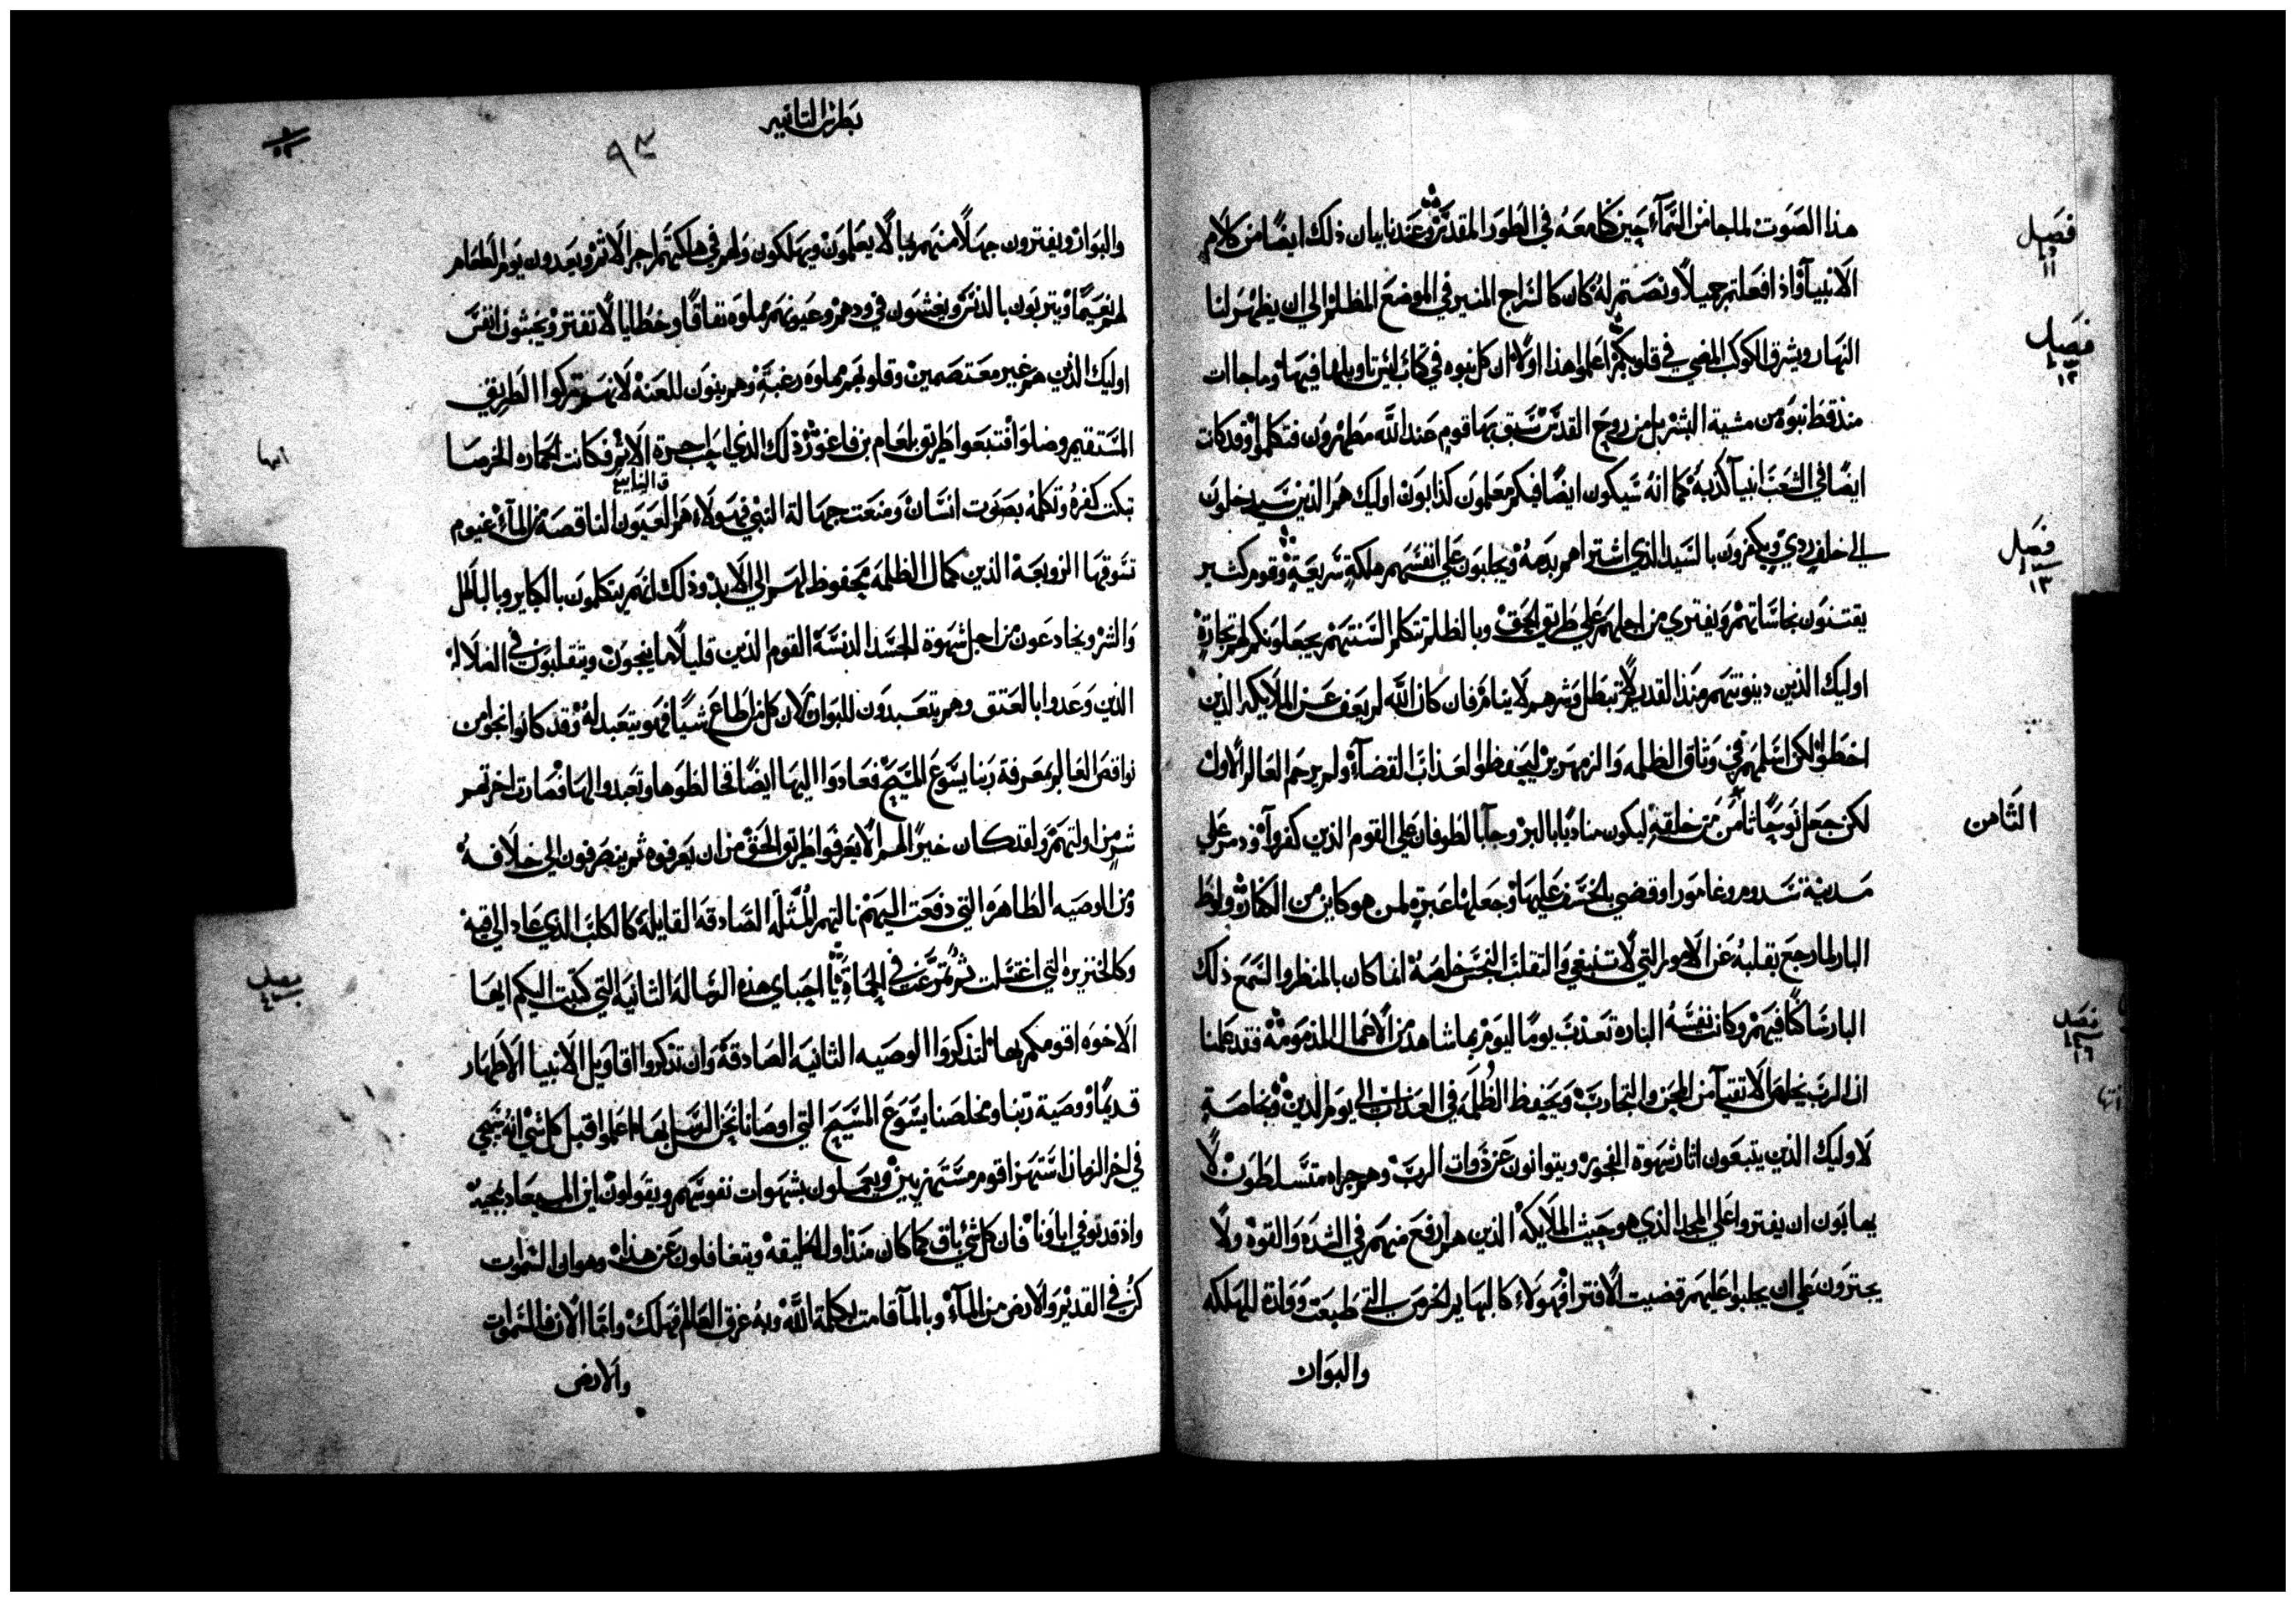 فصل
١١
هذا الصوت لما جا من السمآء حين كنا معه في الطور المقدس وعندنا بيان ذلك ايضًا من كلام
الانبيآ واذ افعلتم جميلًا ونصتم له كان كالسراج المنير في الموضع المظلم الي ان يظهر لنا
فصل
١٢
النهار ويشرق الكوكب المضي في قلوبكم اعلموا هذا اولًا ان كل نبوه في كتاب ليس تاويلها فيها وما جاات
منذ قط نبوة من مشية البشر بل من روح القدس سبق بها قوم عند الله مطهرون فتكلموا وقد كانت
ايضًا في الشعب انبيآ كذبة كما انه سيكون ايضًا فيكم معلمون كذابون اوليك هم الذين سيدخلون
فصل
١٣
الي خلف ردي ويكفرون بالسيد الذي اشتراهم بدمه ويجلبون علي انفسهم هلكة سريعة وقوم كثير
يقتنون نجاساتهم ويفتري من اجلهم علي طريق الحق وبالظلم تتكلم السنتهم يجعلونكم لهم تجارة
اوليك الذين دينونتهم منذ القديم لا تبطل وشرهم لا ينام فان كان الله لم يعف عن الملايكه الذين
اخطوا لكن اسلمهم في وثاق الظلمه والزمهرير ليحفظوا لعذاب القضآء ولم يرحم العالم الاول
الثامن
لكن جعل نوحًا ثامن من خلقه ليكون مناديًا بالبر وجآ بالطوفان علي القوم الذين كفروا ودمر علي
مدينة سدوم وغامورا وقضي بالخسف عليها وجعلها عبرة لمن هو كاين من الكفار ولوط
البار لما رجع بقلبه عن الامور التي لا تنبغي والتقلب النجس خلصه انما كان بالمنظر والسمع ذلك
فصل
١٤
البار ساكنًا فيهم وكانت نفسه البارة تعذب يومًا ليوم بما شاهد من الاعمال المذمومة فقد علمنا
ان الرب يخلص الاتقيآ من المحن والتجارب ويحفظ الظلمه في العذاب الي يوم الدين وبخاصة
لاوليك الذين يتبعون اثار شهوة الفجور ويتوانون عن ذوات الرب وهم جراه متسلطون لا
يهابون ان يفتروا علي المجد الذي هو حيث الملايكه الذين هم ارفع منهم في الشده والقوه ولا
يجترون علي ان يجلبوا عليهم قضيت الافترا فهولاء كالبهايم الخرس التي طبعت وقادة للهلكه
والبوار
بطرس الثانيه
والبوار ويفترون جهلًا منهم بما لا يعلمون ويهلكون ولهم في هلكتهم اجر الاثم ويعدون يوم الطعام
لهم نعيمًا ويتربون بالدنس ويغشون في ودهم وعيونهم مملوه نفاقًا وخطايا لا تفتر ويجثون انفس
اوليك الذين هم غير معتصمين وقلوبهم مملوه رغبة وهم بنون للعنه لانهم تركوا الطريق
المستقيم وضلوا فاتبعوا طريق بلعام بن فاغور ذلك الذي احب حرة الاثم فكانت الحماره الخرسا
تبكت كفره وتكلمه بصوت انسان ومنعت جهالة النبي فهولاء هم العيون الناقصة من المآء غيوم
تسوقها الزوبعة الذين كمال الظلمه محفوظ لهم الي الابد وذلك انهم يتكلمون بالكباير وبالباطل
والشر ويخادعون من اجل شهوة الجسد الدنسة القوم الذين قليلًا ما ينجون ويتقلبون في الضلاله
الذين وعدوا بالعتق وهم يتعبدون للبوار لان كل من اطاع شيًا فهو يتعبد له وقد كانوا نجوا من
نواقص العالم بمعرفة ربنا يسوع المسيح فعادوا اليها ايضًا فخالطوها وتعبدوا لها فصارت اخرتهم
شر من اولتهم ولقد كان خيرًا لهم الا يعرفوا طريق الحق من ان يعرفوه ثم ينصرفون الي خلافه
من الوصيه الطاهره التي دفعت اليهم نالتهم المثلة الصادقه القايلة كالكلب الذي عاد الي قيه
فصل
وكالخنزيره التي اغتسلت ثم تمرغت في الحماة يا احباي هذه الرساله الثانيه التي كتبت اليكم ايها
الاخوه اقومكم بها لتذكروا الوصيه الثانيه الصادقة وان تذكروا اقاويل الانبيا الاطهار
قديمًا ووصية ربنا ومخلصنا يسوع المسيح التي اوصانا نحن الرسل بها اعلموا قبل كل شي انه سيجي
في اخر الزمان استهزا قوم مستهزيين ويعملون بشهوات نفوسهم ويقولون اين الميعاد بمجيه
واذ قد توفي اباونا فان كل شي باق كما كان منذ اول الخليقه ويتغافلون عن هذا وهو ان السموات
كن في القديم والارض من المآء وبالمآ قامت بكلمة الله وبه غرق العالم فهلك واما الان فالسموات
والارض